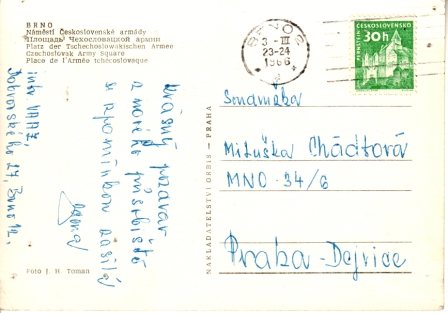 BRNO
Náměstí Československé armády
Площадь Чехословацкой армии
Platz der Tschechoslowakischen Armee
Czechoslovak Army Square
Place de l'Armée tchécoslovaque
Krásný pozdrav
z nového působiště
se vzpomínkou zasílá
24, Brno
Foto J. H. Toman
NAKLADATELSTVÍ ORBIS - PRAHA
BRNO 2
3 - III
23-24
1966
ČESKOSLOVENSKO
30h
PERNŠTEJN
Soudružka
Miluška Chádtová
MNO - 34/6
Praha - Dejvice